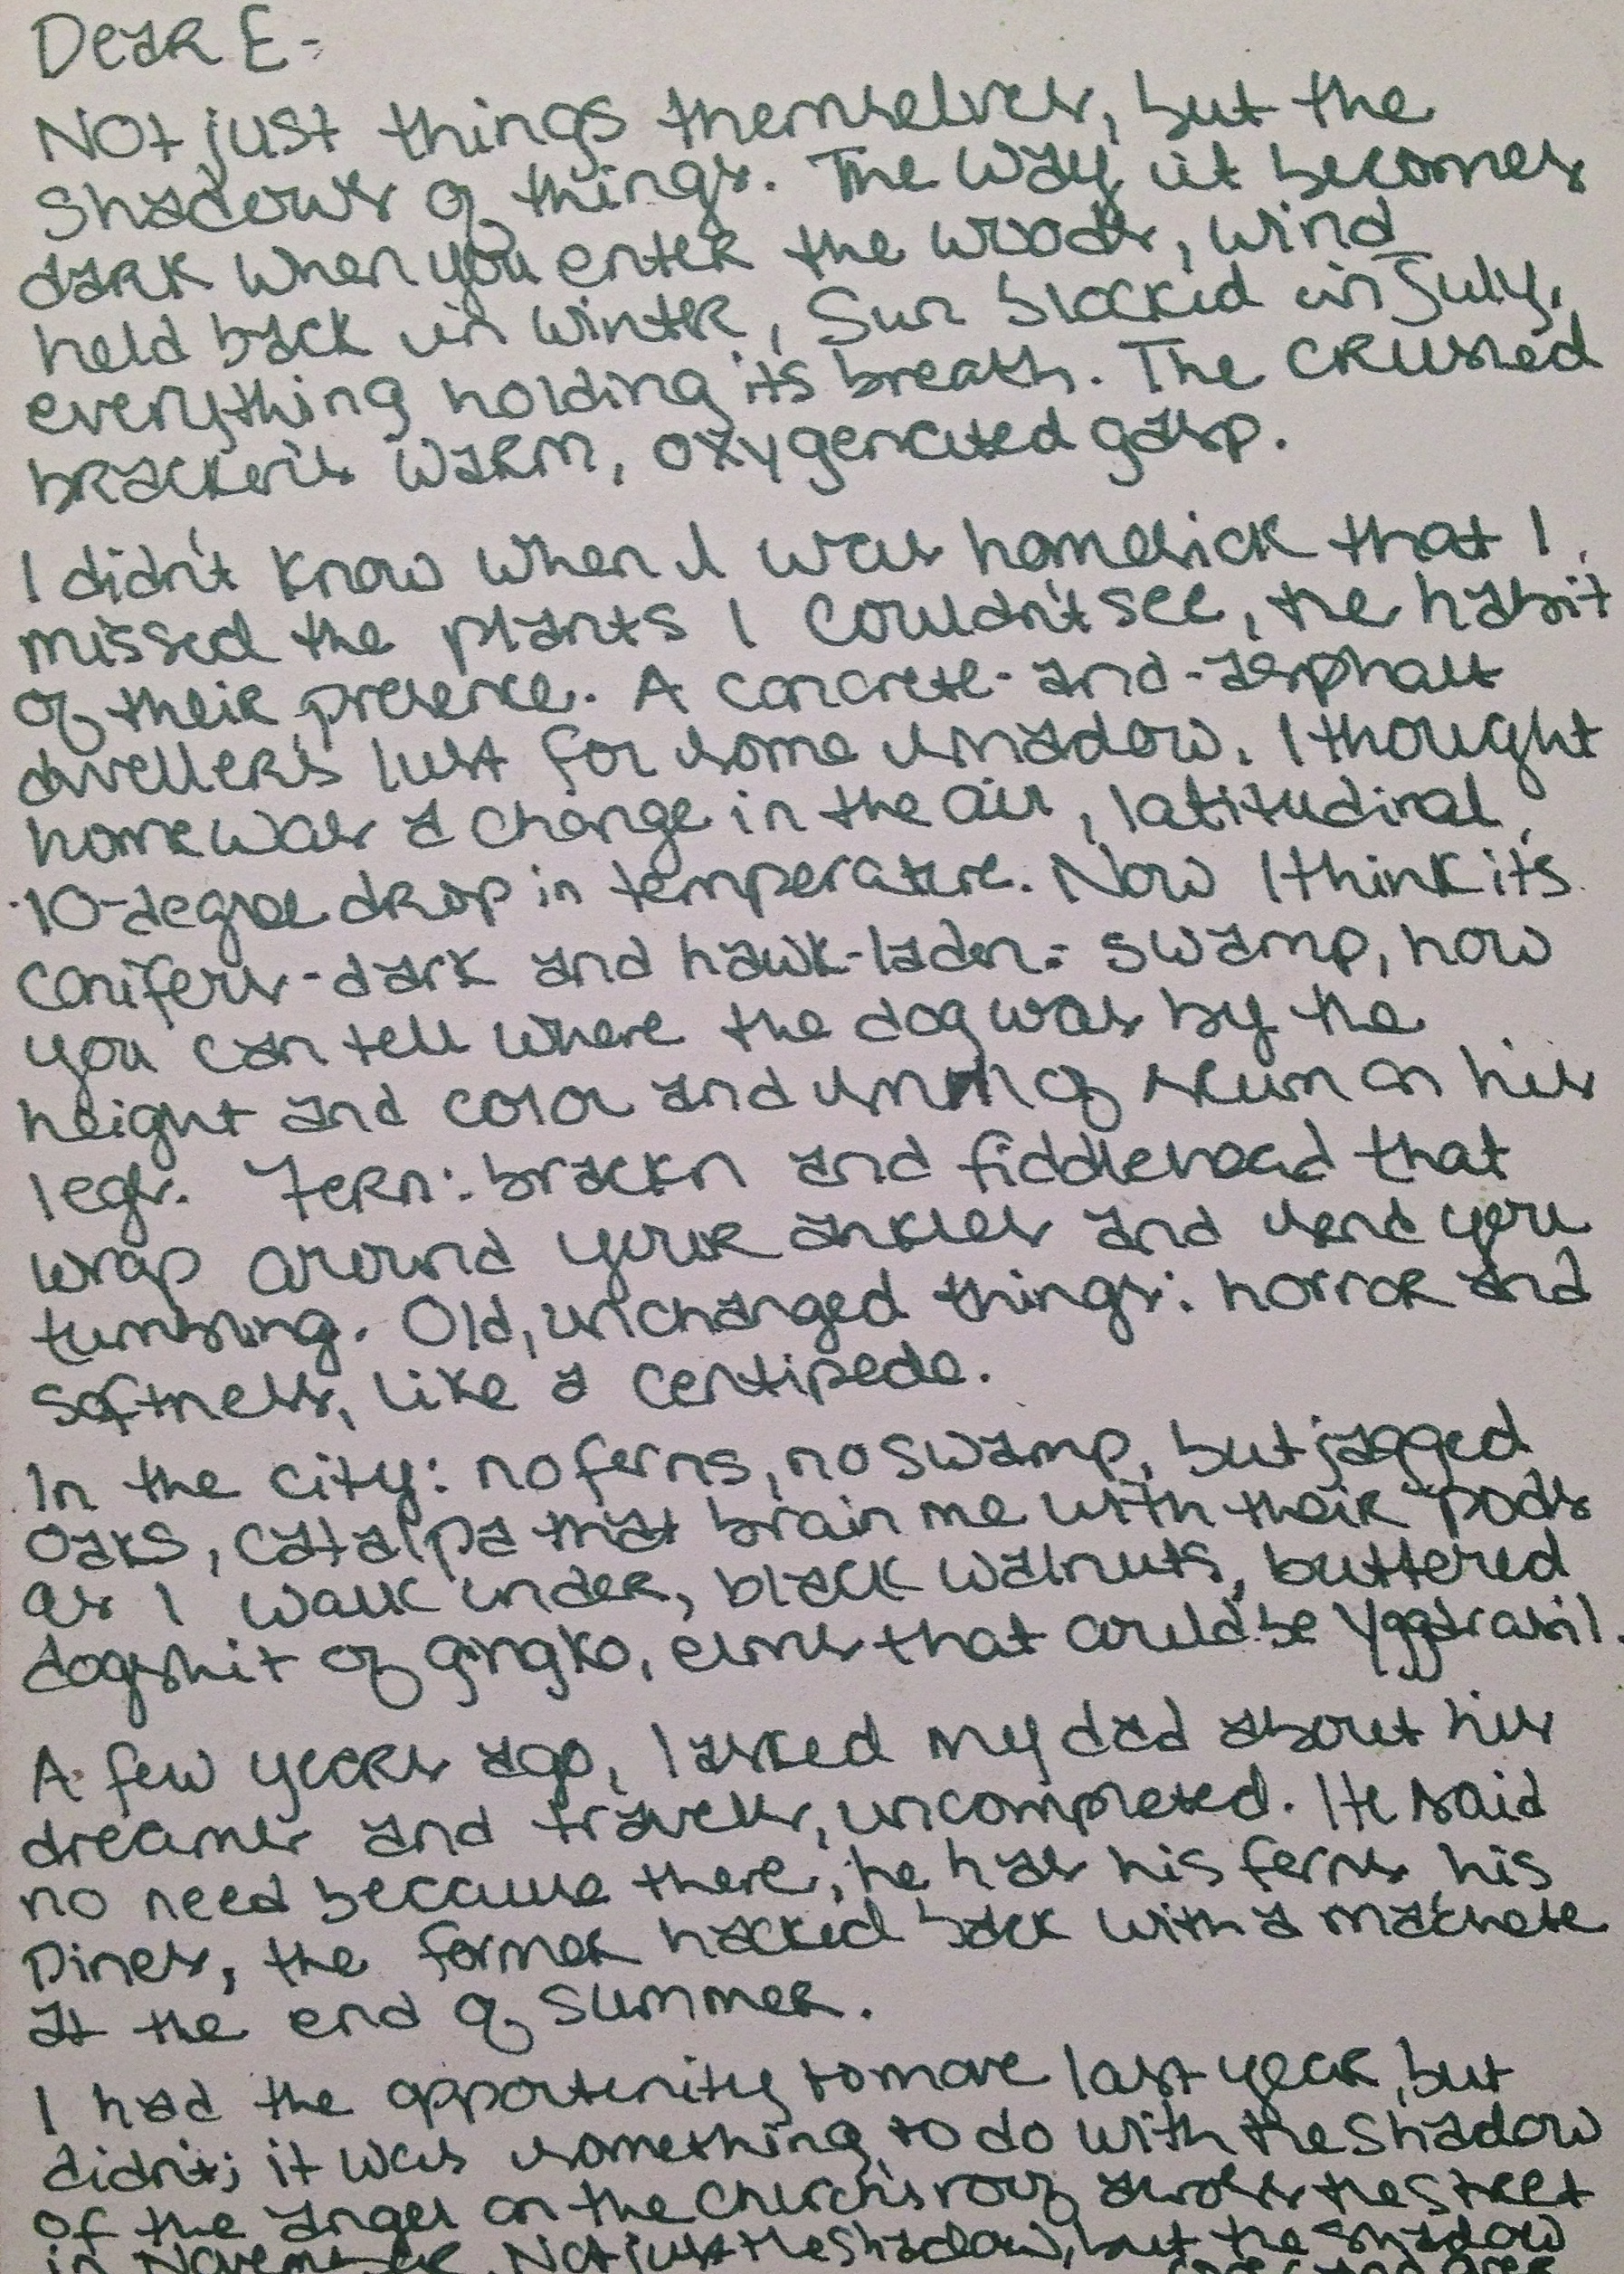 Dear E-
Not just things themselves, but the
shadows of things. The way it becomes
dark when you enter the woods, wind
held back in winter, sun blocked in July,
everything holding its breath. The crushed
bracken's warm, oxygenated gasp.
I didn't know when I was homesick that I
missed the plants I couldn't see, the habit
of their presence. A concrete-and-asphalt
dweller's lust for some shadow. I thought
home was a change in the air, latitudinal,
10-degree drop in temperature. Now I think it's
conifers-dark and hawk-laden: swamp, how
you can tell where the dog was by the
height and color and smell of scum on his
legs. Fern: brackn and fiddlehead that
wrap around your ankles and send you
tumbling. Old, unchanged things: horror and
softness, like a centipede.
In the city: no ferns, no swamp, but jagged
oaks, catalpa that brain me with their pods
as I walk under, black walnuts, buttered
dogshit of gingko, elms that could be Yggdrasil.
A few years ago, I asked my dad about his
dreams and travels, uncompleted. He said
no need because there, he has his ferns his
pines, the former hacked back with a machete
at the end of summer.
I had the opportunity to move last year, but
didn't; it was something to do with the shadow
of the angel on the church's roof across the street
in November. Not just the shadow, but the shadow